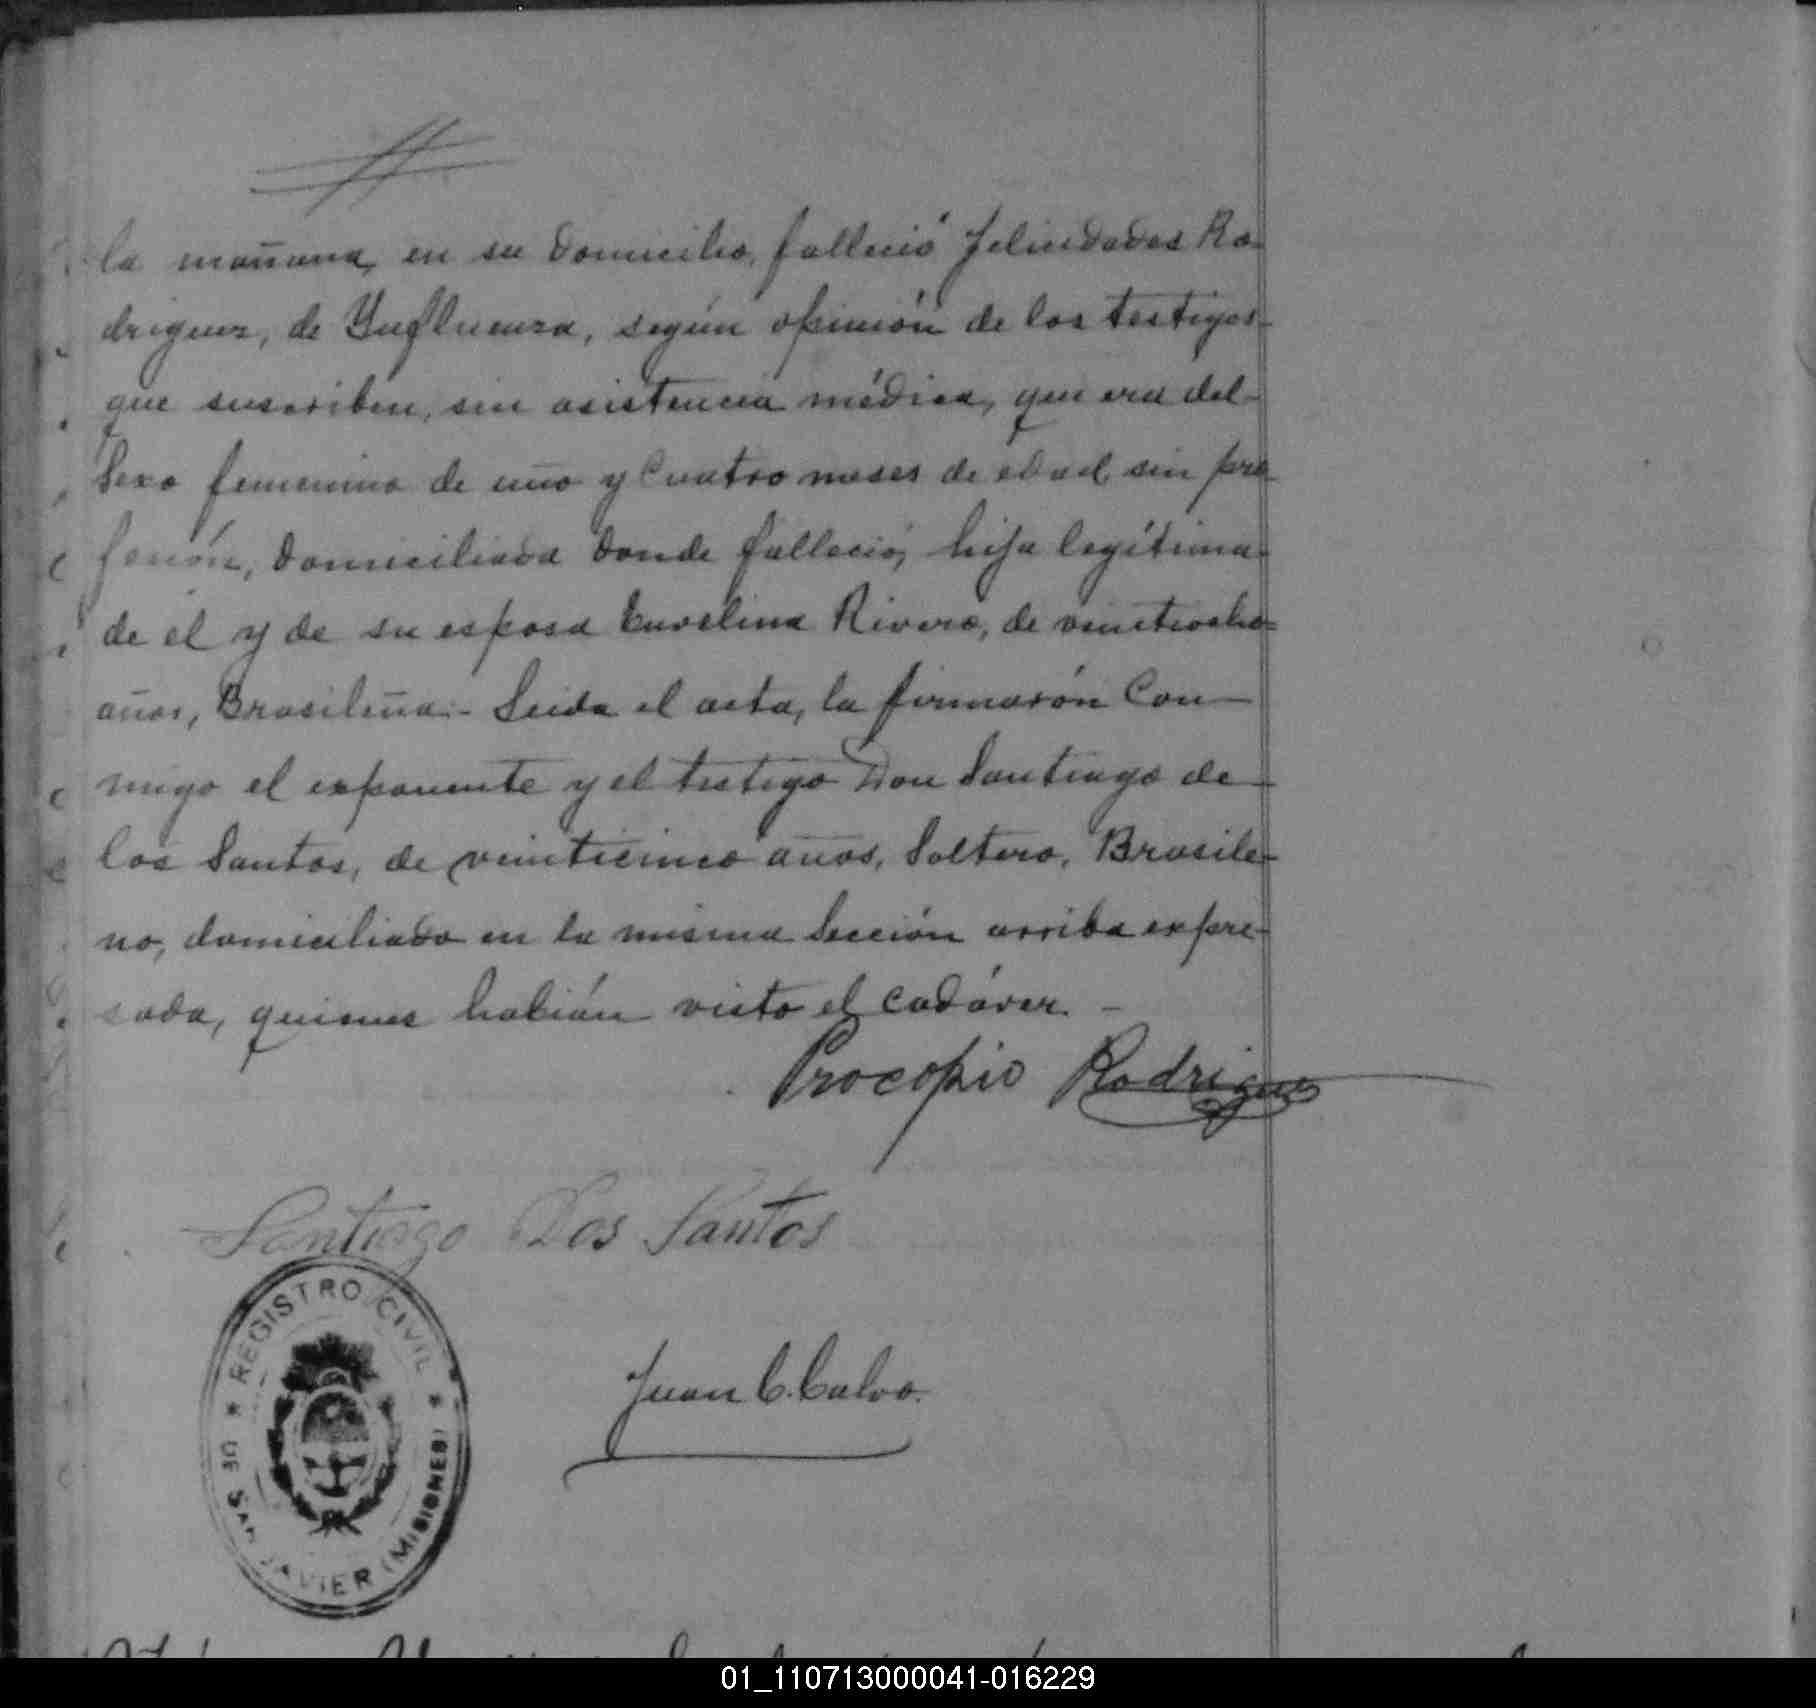 la mañana, en su domicilio, falleció Felicidades Ro-
driguez, de Ynfluenza, según opinión de los testigos-
que suscriben, sin asistencia médica, que era del-
Sexo femenino de uno y Cuatro meses de edad, sin pro-
fesión, domiciliada donde falleció, hija legítima-
de él y de su esposa Euvelina Rivero, de veintiocho-
años, Brasileña.- Leida el acta, la firmarón Con-
migo el exponente y el testigo Don Santiago de-
los Santos, de veinticinco años, Soltero, Brasile-
no, domiciliado en la misma Sección arriba expre-
sada, quienes habián visto el cadáver. -
Procopio Rodriguez
Santiago Dos Santos
REGISTRO CIVIL
DE SAN JAVIER (MISIONES)
Juan C. Calvo.
01_110713000041-016229